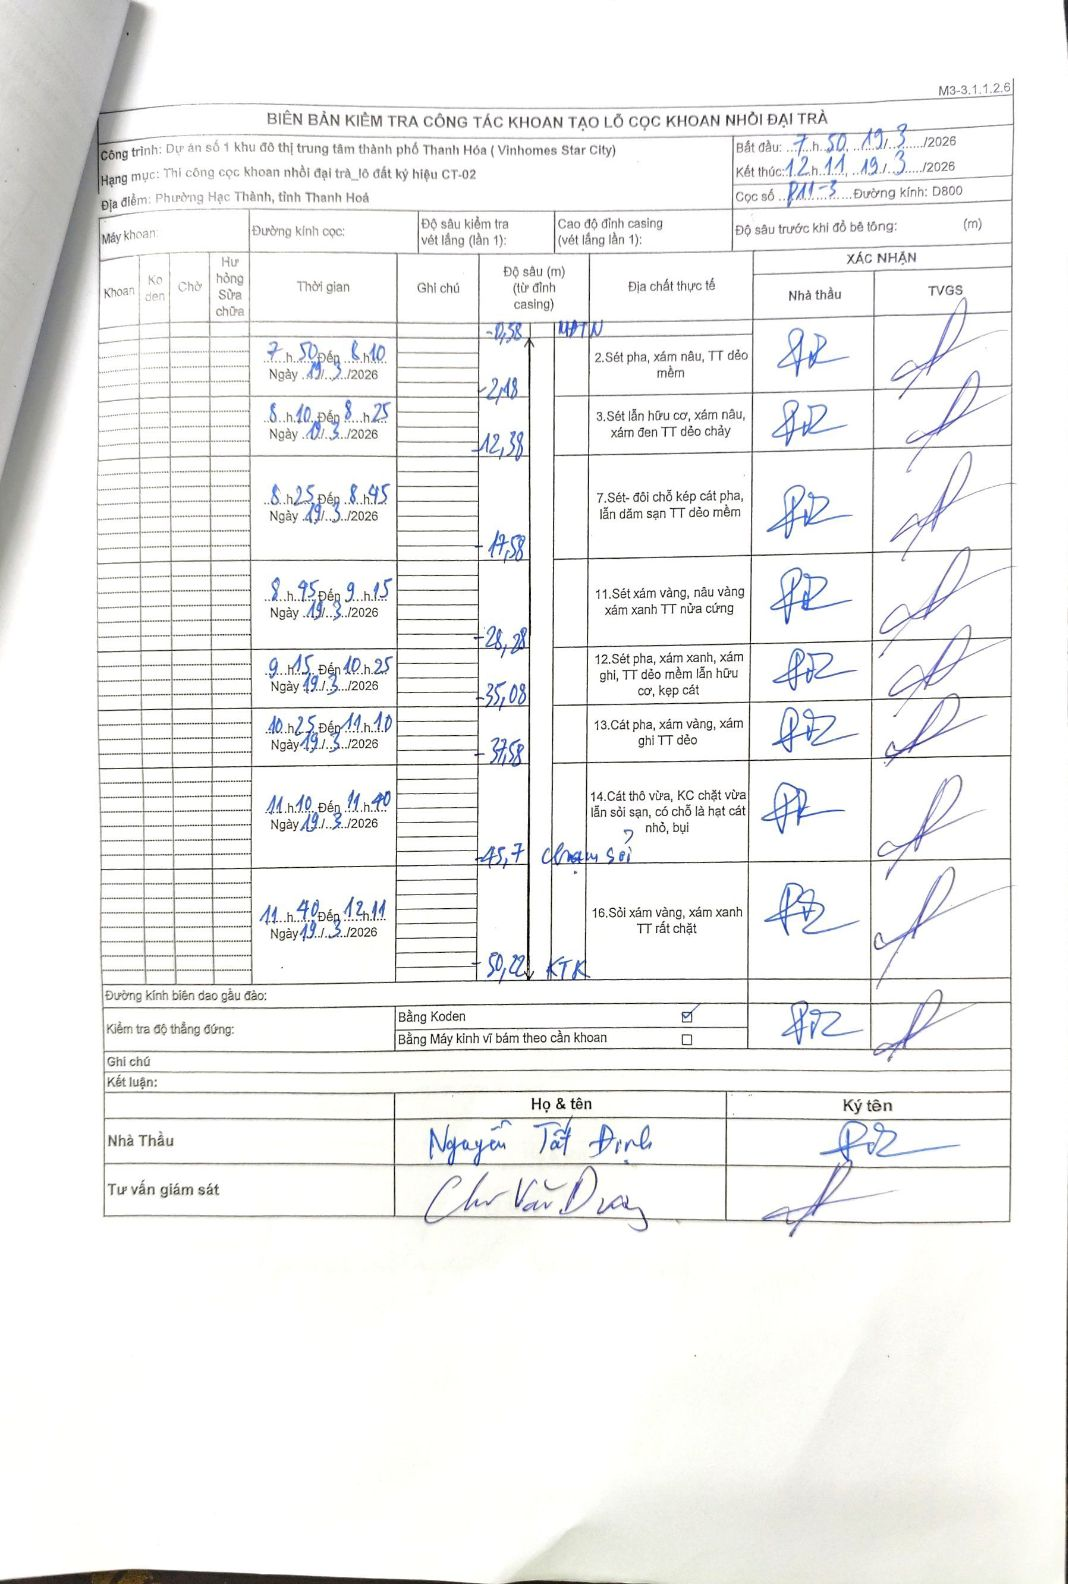 M3-3.1.1.2.6
BIÊN BẢN KIỂM TRA CÔNG TÁC KHOAN TẠO LỖ CỌC KHOAN NHỒI ĐẠI TRÀ
Công trình: Dự án số 1 khu đô thị trung tâm thành phố Thanh Hóa ( Vinhomes Star City)
Hạng mục: Thi công cọc khoan nhồi đại trà_lô đất ký hiệu CT-02
Địa điểm: Phường Hạc Thành, tỉnh Thanh Hoá
Bắt đầu: 7 h 50, 19/3/2026
Kết thúc: 12 h 11, 19/3/2026
Cọc số P11-3 Đường kính: D800
Máy khoan: Đường kính cọc: Độ sâu kiểm tra vét lắng (lần 1): Cao độ đỉnh casing (vét lắng lần 1): Độ sâu trước khi đổ bê tông: (m)
Khoan Ko den Chờ Hư hỏng Sửa chữa Thời gian Ghi chú Độ sâu (m) (từ đỉnh casing) Địa chất thực tế XÁC NHẬN
Nhà thầu TVGS
-0,58 MĐTN
7 h 50 Đến 8 h 10
Ngày 19/3/2026
2.Sét pha, xám nâu, TT dẻo mềm
-2,18
8 h 10 Đến 8 h 25
Ngày 19/3/2026
3.Sét lẫn hữu cơ, xám nâu, xám đen TT dẻo chảy
-12,38
8 h 25 Đến 8 h 45
Ngày 19/3/2026
7.Sét- đôi chỗ kép cát pha, lẫn dăm sạn TT dẻo mềm
-17,58
8 h 45 Đến 9 h 15
Ngày 19/3/2026
11.Sét xám vàng, nâu vàng xám xanh TT nửa cứng
-28,28
9 h 15 Đến 10 h 25
Ngày 19/3/2026
12.Sét pha, xám xanh, xám ghi, TT dẻo mềm lẫn hữu cơ, kẹp cát
-35,08
10 h 25 Đến 11 h 10
Ngày 19/3/2026
13.Cát pha, xám vàng, xám ghi TT dẻo
-37,58
11 h 10 Đến 11 h 40
Ngày 19/3/2026
14.Cát thô vừa, KC chặt vừa lẫn sỏi sạn, có chỗ là hạt cát nhỏ, bụi
-45,7 chạm sỏi
11 h 40 Đến 12 h 11
Ngày 19/3/2026
16.Sỏi xám vàng, xám xanh TT rất chặt
-50,22 KTK
Đường kính biên dao gầu đào:
Kiểm tra độ thẳng đứng:
Bằng Koden ☑
Bằng Máy kinh vĩ bám theo cần khoan ☐
Ghi chú
Kết luận:
Họ & tên Ký tên
Nhà Thầu Nguyễn Tất Định
Tư vấn giám sát Chu Văn Dương